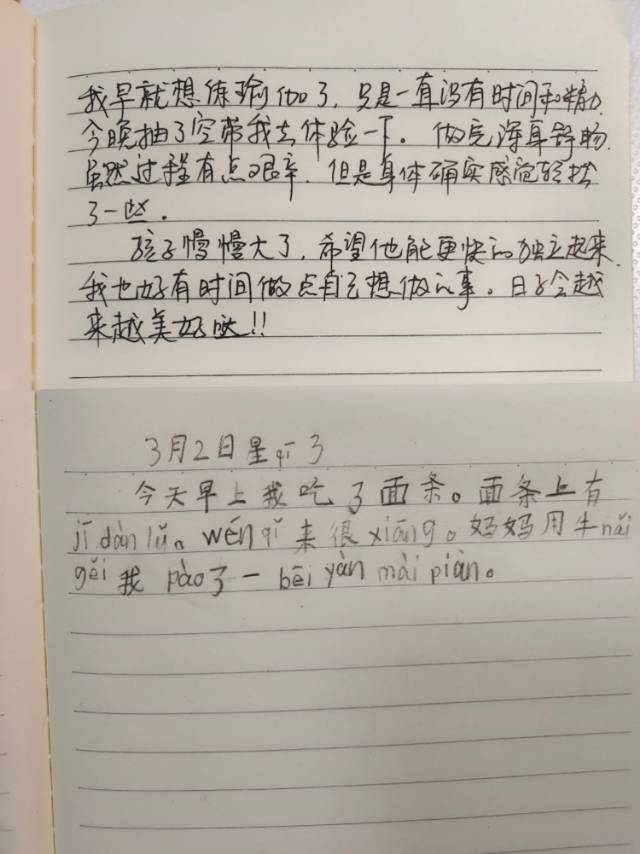 我早就想练瑜伽了，只是一直没有时间和精力
今晚抽了空带我去体验一下。做完浑身舒畅.
虽然过程有点艰辛，但是身体确实感觉轻松
了一些.
孩子慢慢大了，希望他能更快的独立起来.
我也好有时间做点自己想做的事。日子会越
来越美好哒!!
3月2日星qī3
今天早上我吃了面条。面条上有
jī dàn lǔ。wén qǐ来很xiāng。妈妈用牛nǎi
gěi我pào了一bēi yàn mài piàn。